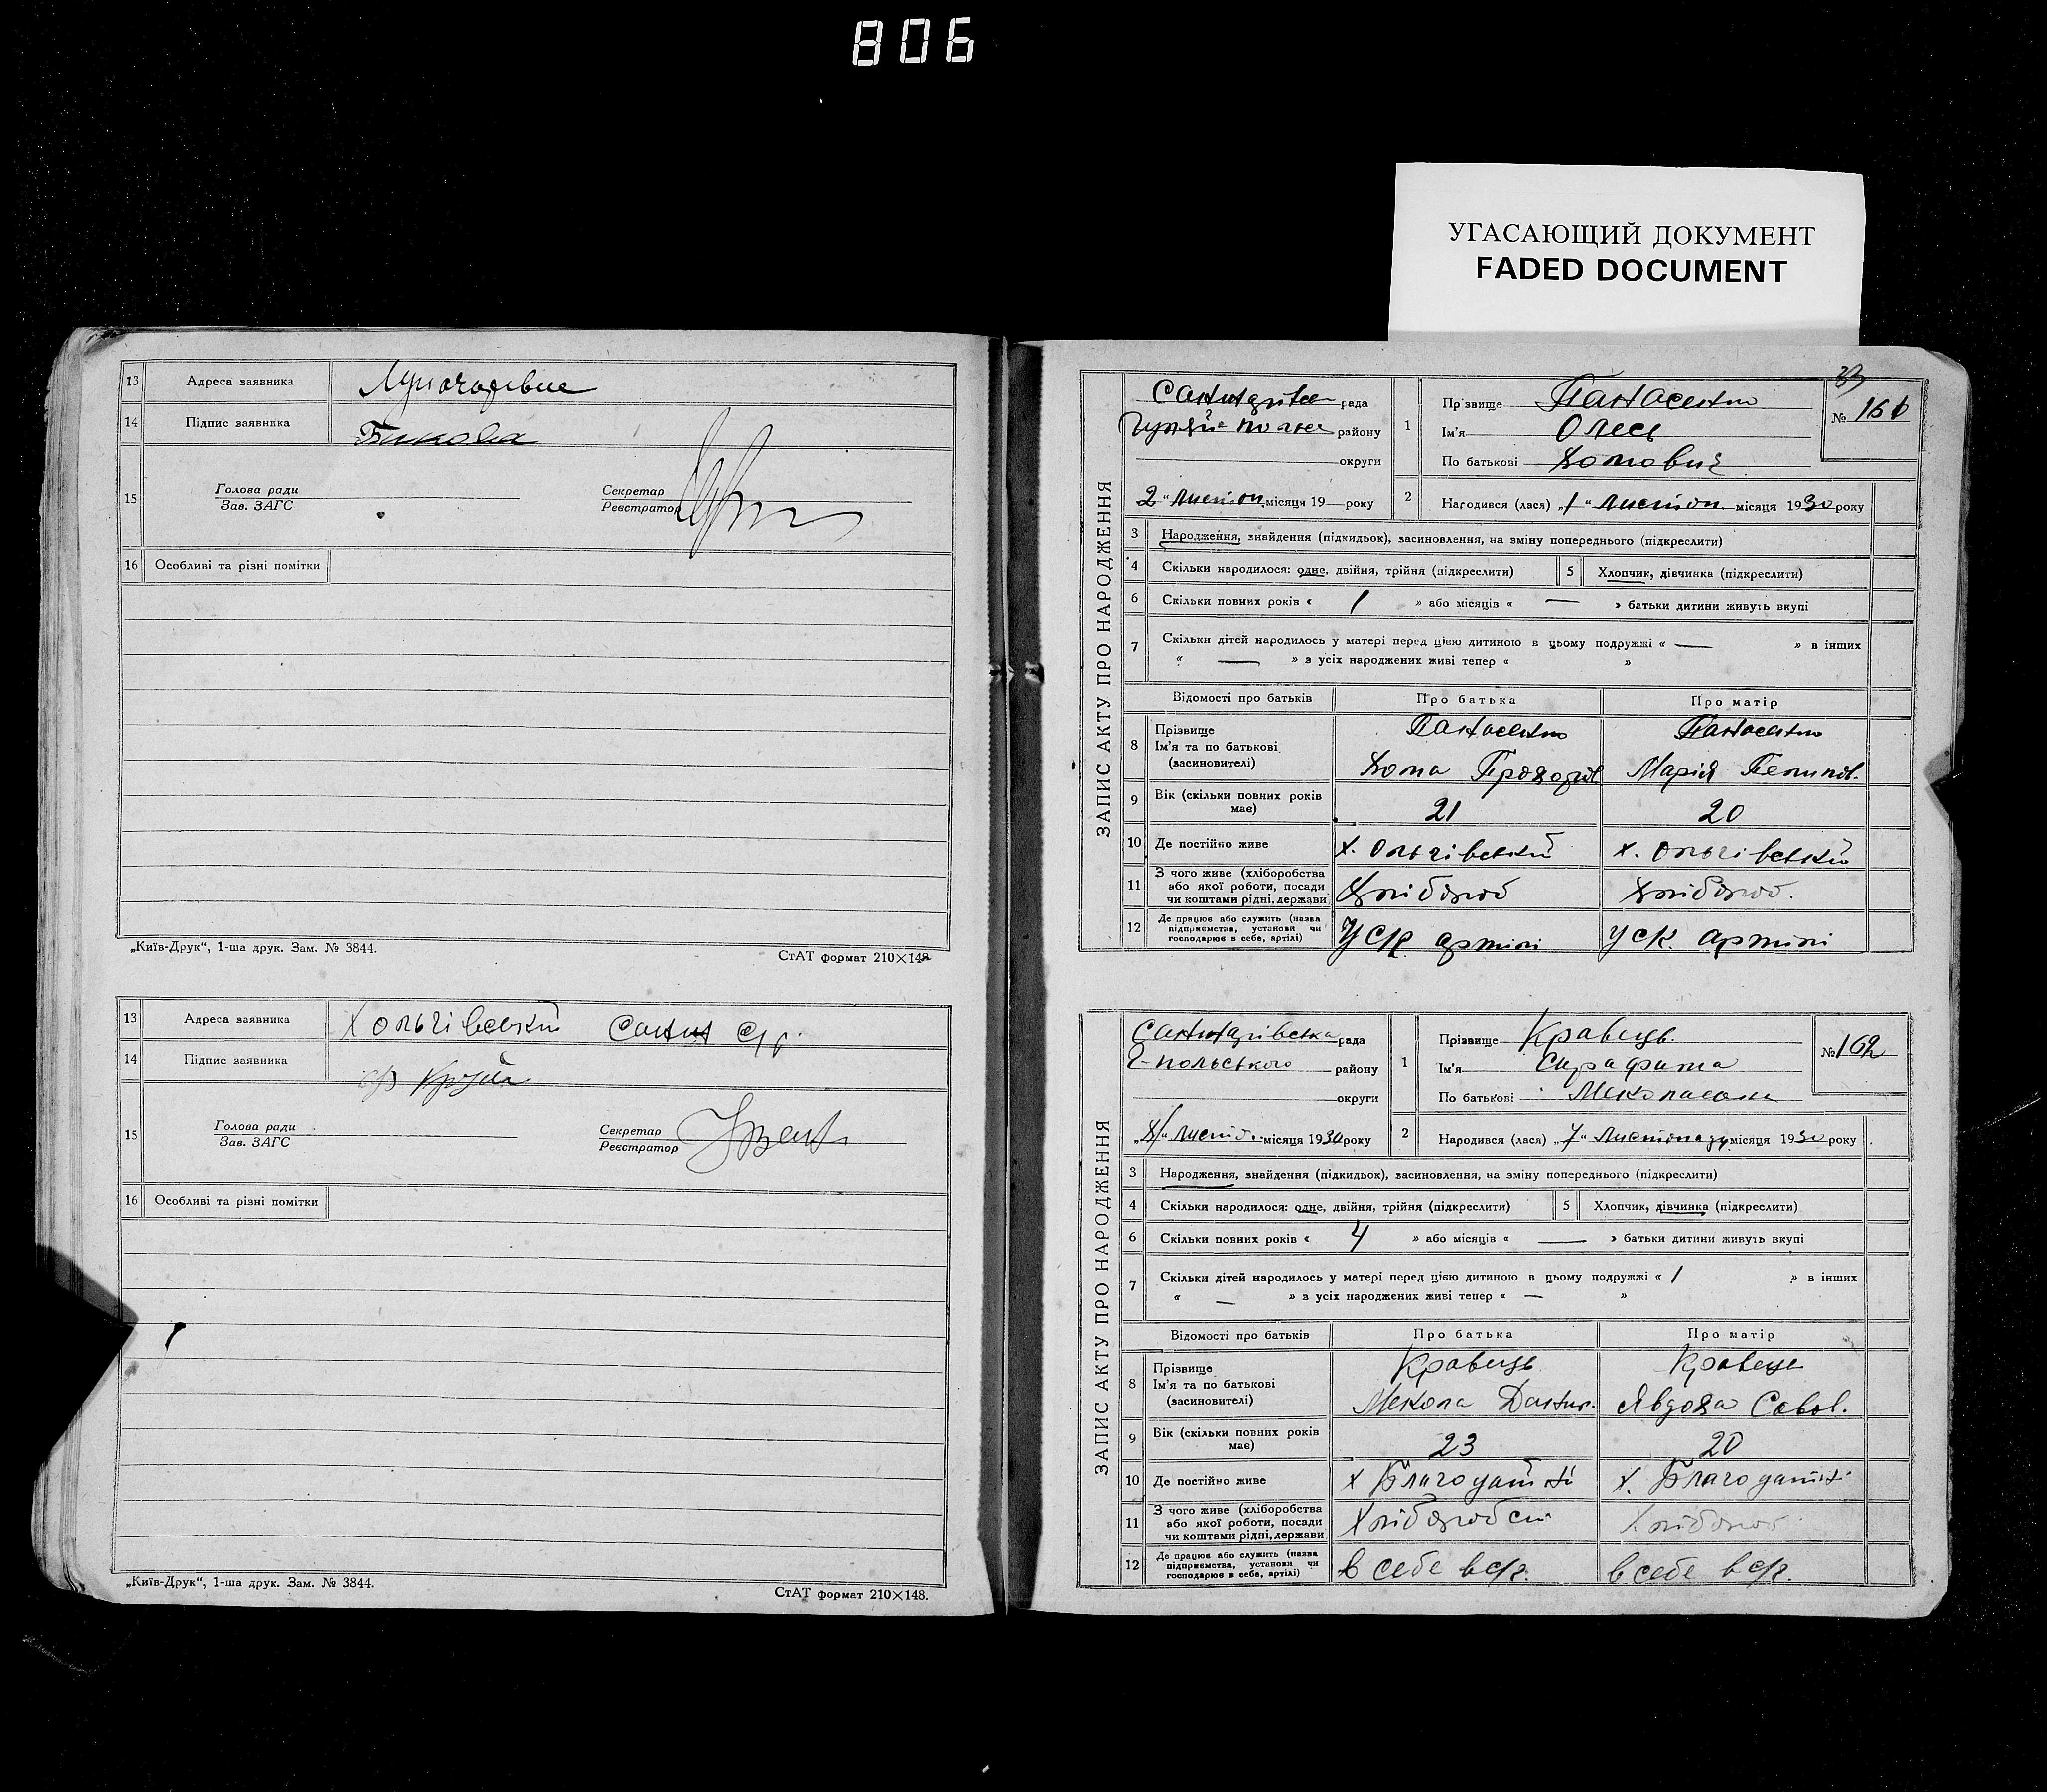 806
УГАСАЮЩИЙ ДОКУМЕНТ
FADED DOCUMENT
13 Адреса заявника
14 Підпис заявника Бикова
15 Голова ради
Зав. ЗАГС
Секретар
Реєстратор
16 Особливі та різні помітки
„Київ-Друк“, 1-ша друк. Зам. № 3844.
СтАТ формат 210×148
13 Адреса заявника Х Ольгівський
14 Підпис заявника
15 Голова ради
Зав. ЗАГС
Секретар
Реєстратор
16 Особливі та різні помітки
„Київ-Друк“, 1-ша друк. Зам. № 3844.
СтАТ формат 210×148.
33
ЗАПИС АКТУ ПРО НАРОДЖЕННЯ
рада
району
округи
2 “ листоп. місяця 19 — року
1 Прізвище Панасенко
Ім'я Олесь
По батькові Хомович
№ 161
2 Народився (лася) „ 1 “ листоп. місяця 1930 року
3 Народження, знайдення (підкидьок), засиновлення, на зміну попереднього (підкреслити)
4 Скільки народилося: одне, двійня, трійня (підкреслити)
5 Хлопчик, дівчинка (підкреслити)
6 Скільки повних років « 1 » або місяців « — » батьки дитини живуть вкупі
7 Скільки дітей народилось у матері перед цією дитиною в цьому подружжі « — » в інших
« — » з усіх народжених живі тепер « »
Відомості про батьків Про батька Про матір
8 Прізвище Панасенко Панасенко
Ім'я та по батькові
(засиновителі) Хома Марія
9 Вік (скільки повних років
має) 21 20
10 Де постійно живе х. Ольгівський х. Ольгівський
11 З чого живе (хліборобства
або якої роботи, посади
чи коштами рідні, держави) Хлібороб Хлібороб.
12 Де працює або служить (назва
підприємства, установи чи
господарює в себе, артілі) артілі артілі
ЗАПИС АКТУ ПРО НАРОДЖЕННЯ
рада
Г-польського району
округи
місяця 1930 року
1 Прізвище Кравець
Ім'я
По батькові
№ 162
2 Народився (лася) „ 7 “ Листопаду місяця 1930 року
3 Народження, знайдення (підкидьок), засиновлення, на зміну попереднього (підкреслити)
4 Скільки народилося: одне, двійня, трійня (підкреслити)
5 Хлопчик, дівчинка (підкреслити)
6 Скільки повних років « 4 » або місяців « — » батьки дитини живуть вкупі
7 Скільки дітей народилось у матері перед цією дитиною в цьому подружжі « 1 » в інших
« — » з усіх народжених живі тепер « — »
Відомості про батьків Про батька Про матір
8 Прізвище Кравець Кравець
Ім'я та по батькові
(засиновителі) Мекола Данил. Явдоха Савов.
9 Вік (скільки повних років
має) 23 20
10 Де постійно живе х Благодатній х. Благодатні
11 З чого живе (хліборобства
або якої роботи, посади
чи коштами рідні, держави Хлібороб
12 Де працює або служить (назва
підприємства, установи чи
господарює в себе, артілі) в себе в себе